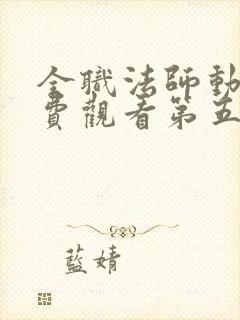 全職法師動
費觀看第五
藍婧